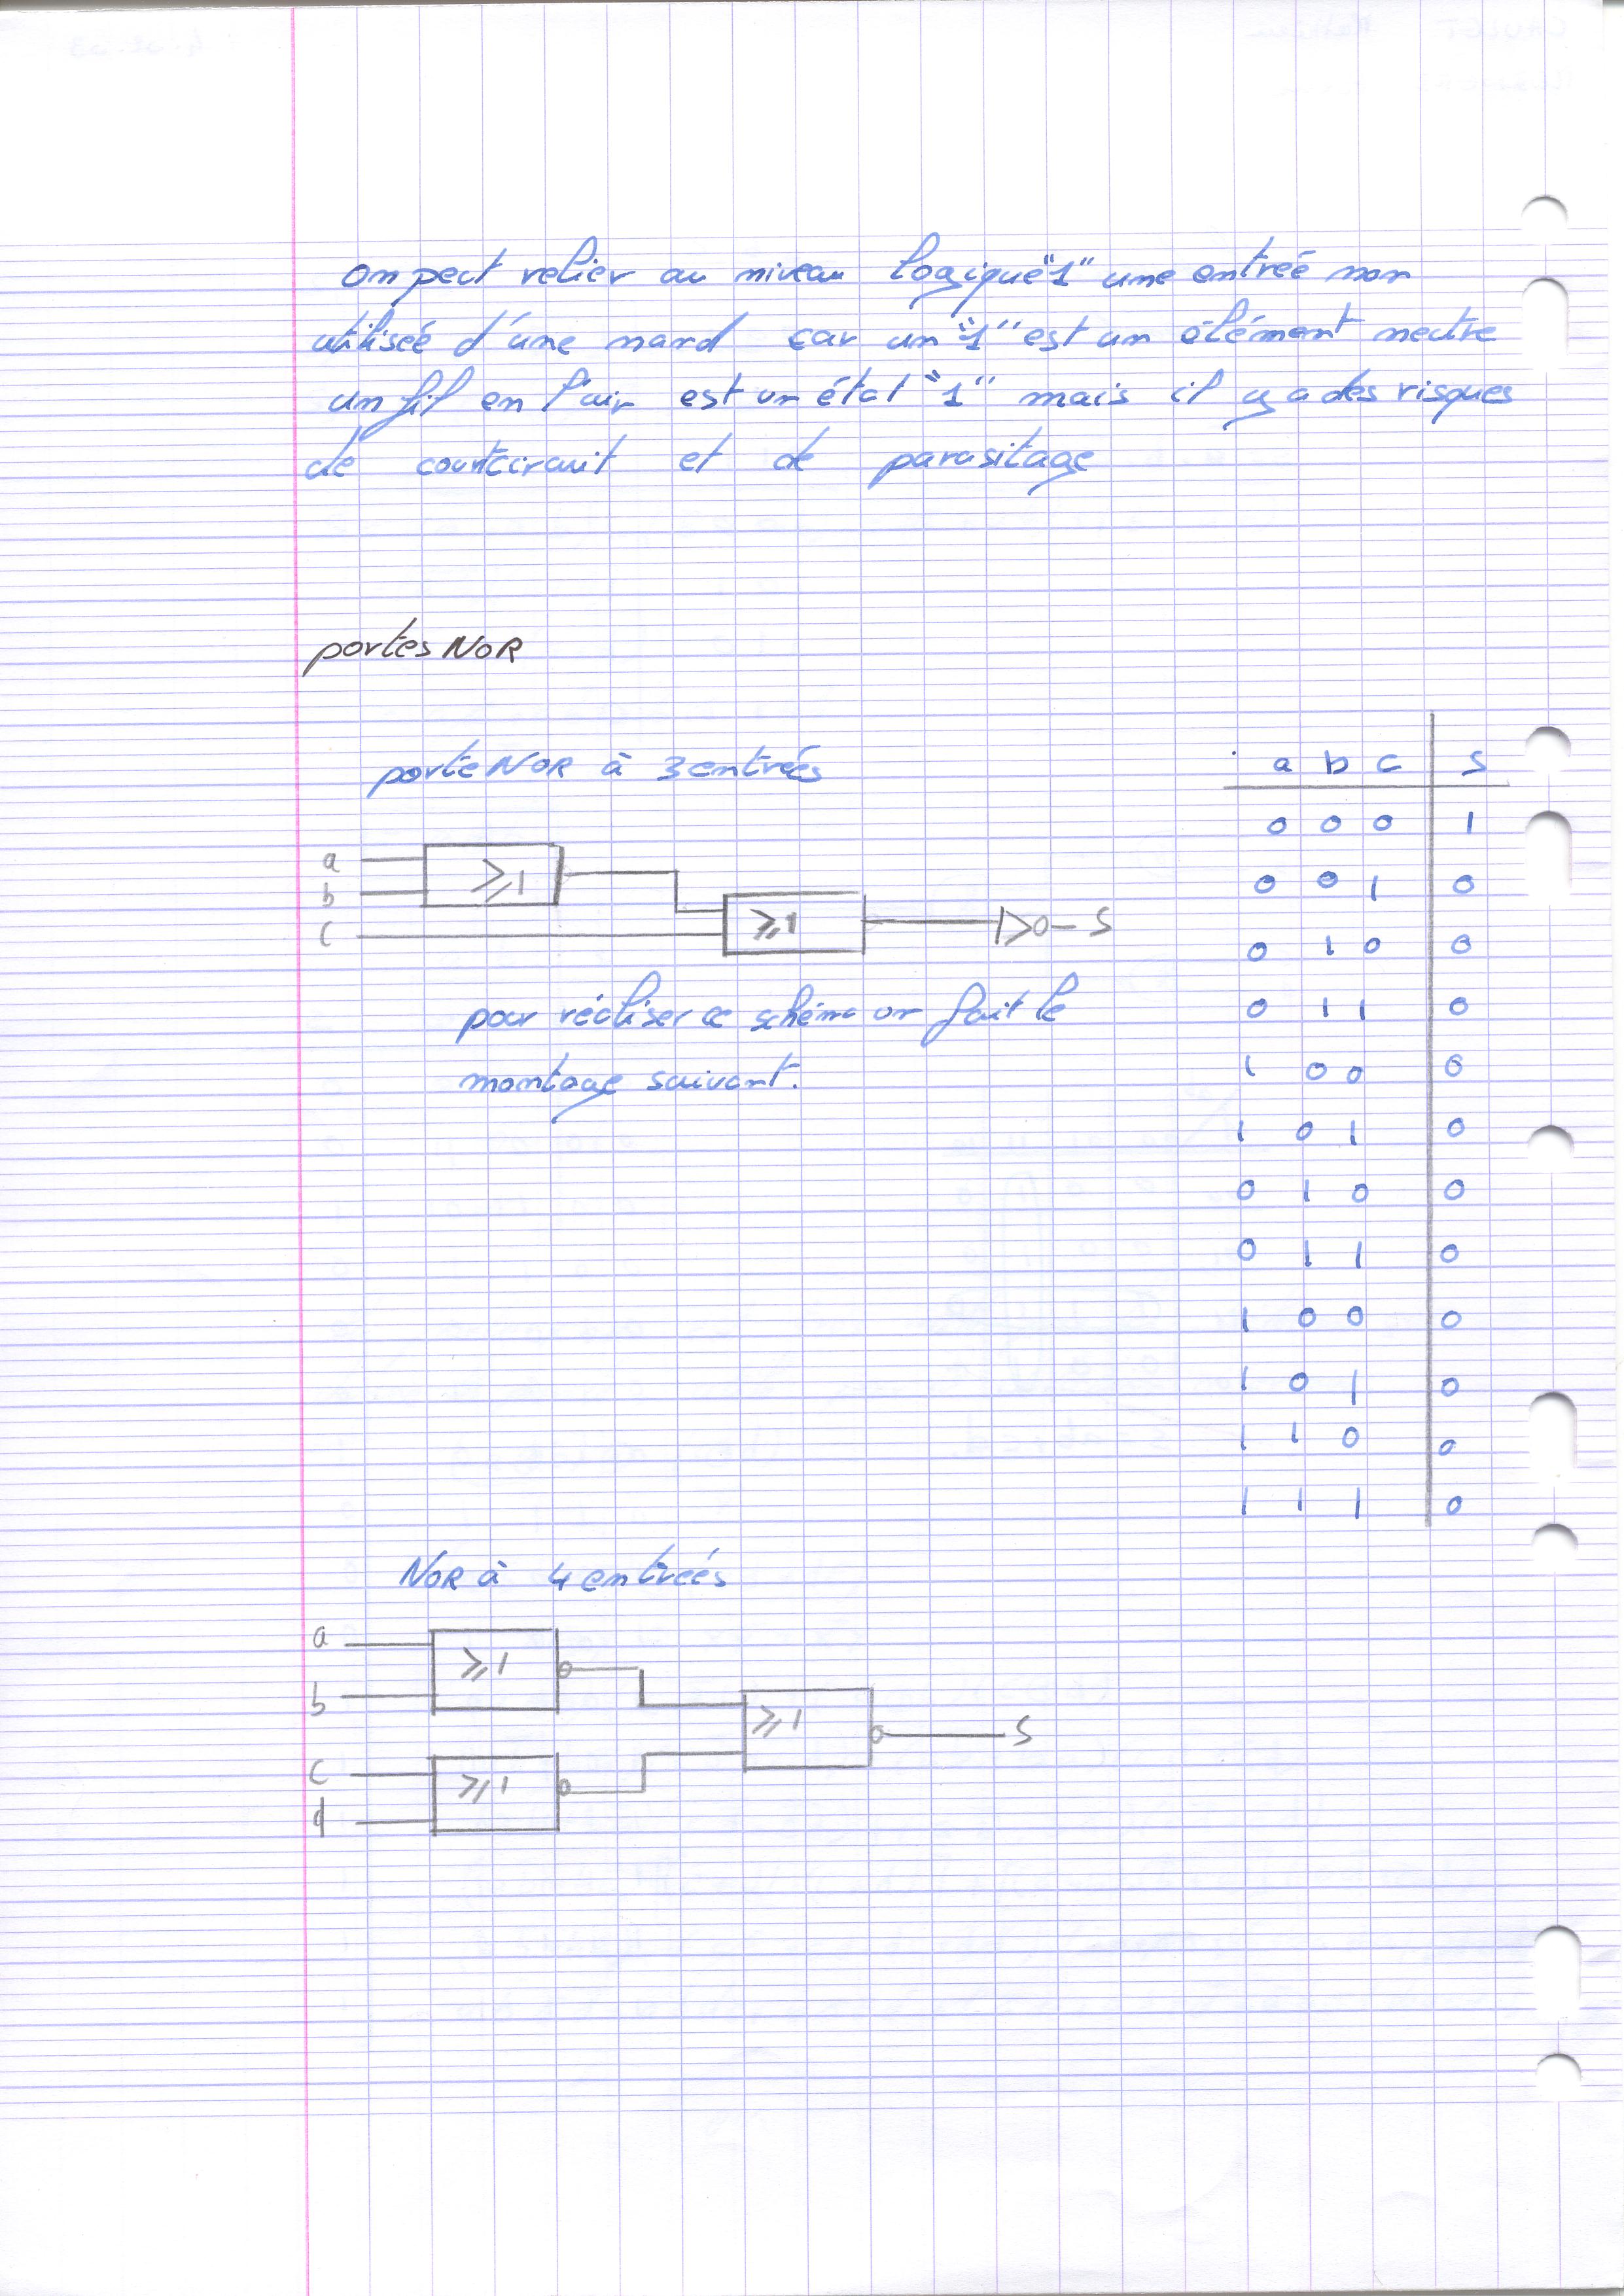 on peut relier au niveau logique "1" une entrée non
utilisée d'une nand car un "1" est un élément neutre
un fil en l'air est un état "1" mais il y a des risques
de courtcircuit et de parasitage
portes NOR
porte NOR à 3 entrées
a b c S
0 0 0 1
0 0 1 0
0 1 0 0
0 1 1 0
1 0 0 0
1 0 1 0
0 1 0 0
0 1 1 0
1 0 0 0
1 0 1 0
1 1 0 0
1 1 1 0
a
b
c
≥1
≥1
S
pour réaliser ce schéma on fait le
montage suivant.
NOR à 4 entrées
a
b
c
d
≥1
≥1
≥1
S